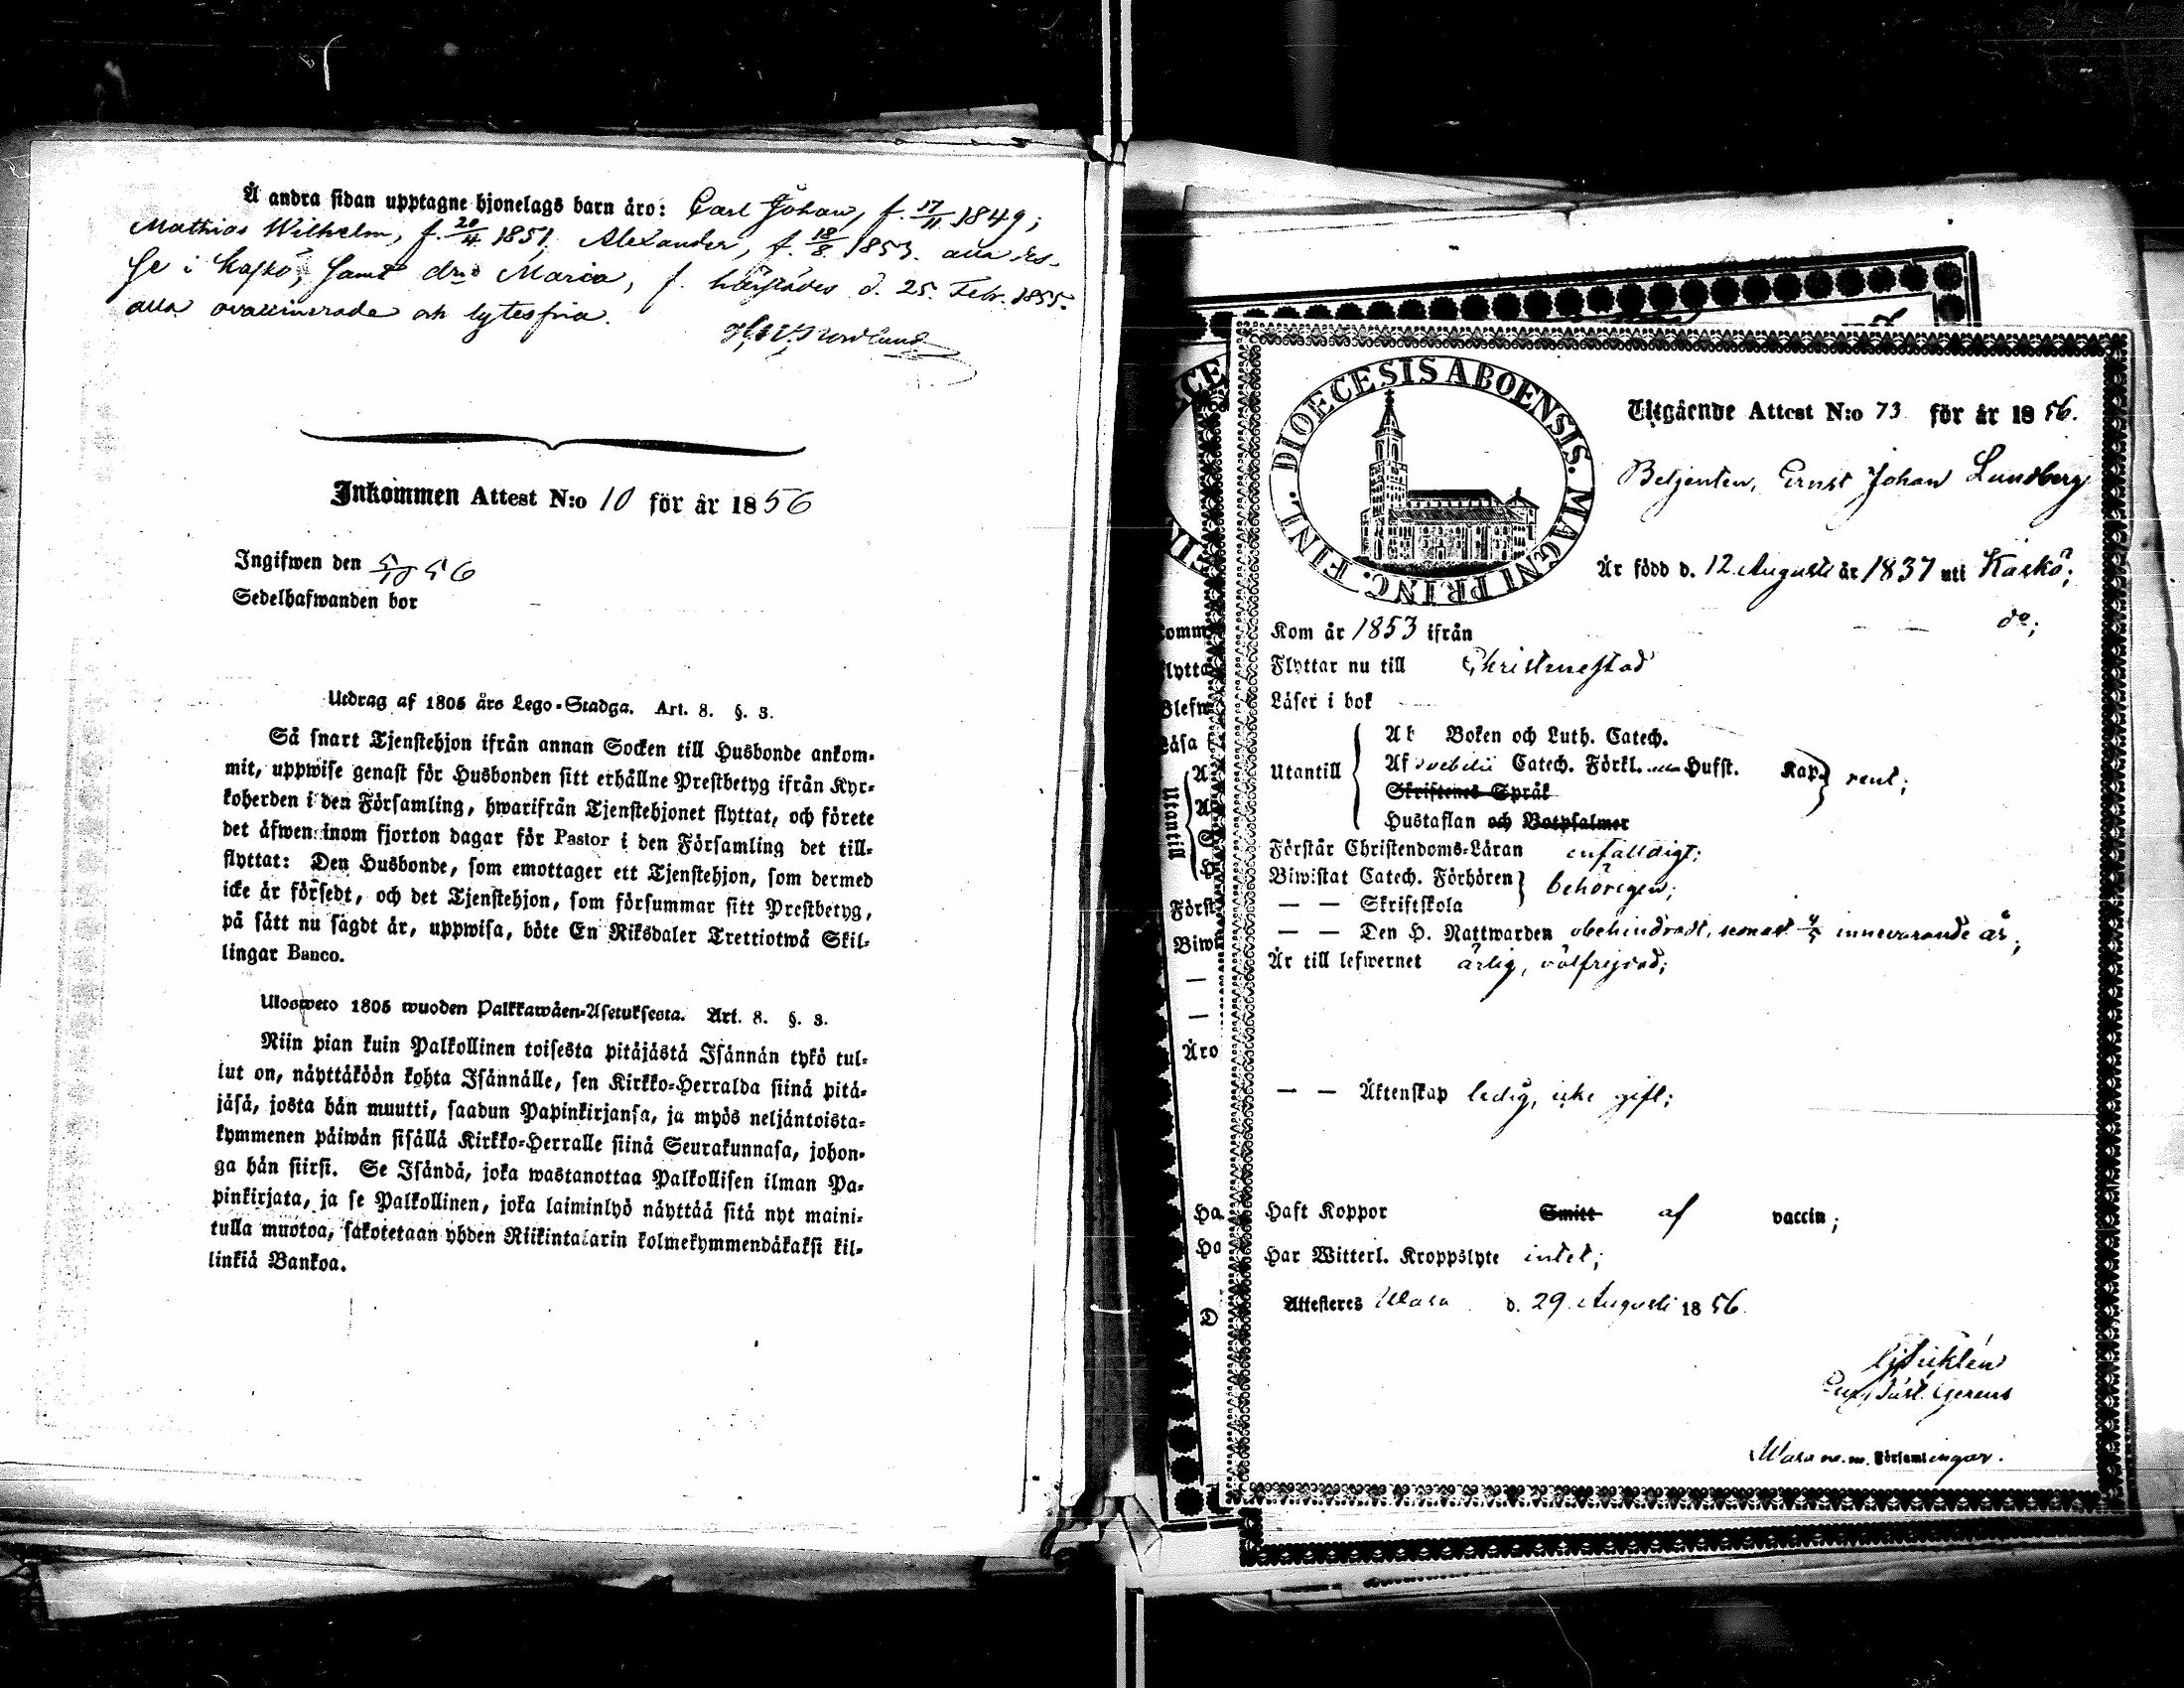 Å andra sidan upptagne hjonelags barn äro: Carl Johan, f. 17/11 1849;
Mathias Wilhelm, f. 20/4 1851, Alexander, f. 18/8 1853. alla
i Kaskö, samt Maria, f. härstädes d. 25. Febr. 1855.
alla ovaccinerade och lytesfria.
Inkommen Attest N:o 10 för år 1856
Ingifwen den 5/10 56
Sedelhafwanden bor
Utdrag af 1805 års Lego-Stadga. Art. 8. §. 3.
Så snart Tjenstehjon ifrån annan Socken till Husbonde ankom-
mit, uppwise genast för Husbonden sitt erhållne Prestbetyg ifrån Kyr-
koherden i den Församling, hwarifrån Tjenstehjonet flyttat, och förete
det äfwen inom fjorton dagar för Pastor i den Församling det till-
flyttat: Den Husbonde, som emottager ett Tjenstehjon, som dermed
icke är försedt, och det Tjenstehjon, som försummar sitt Prestbetyg,
på sätt nu sagdt är, uppwisa, böte En Riksdaler Trettiotwå Skil-
lingar Banco.
Ulosweto 1805 wuoden Palkkawäen-Asetuksesta. Art. 8. §. 3.
Niin pian kuin Palkollinen toisesta pitäjästä Isännän tykö tul-
lut on, näyttäköön kohta Isännälle, sen Kirkko-Herralda siinä pitä-
jäsä, josta hän muutti, saadun Papinkirjansa, ja myös neljäntoista-
kymmenen päiwän sisällä Kirkko-Herralle siinä Seurakunnasa, johon-
ga hän siirsi. Se Isändä, joka wastanottaa Palkollisen ilman Pa-
pinkirjata, ja se Palkollinen, joka laiminlyö näyttää sitä nyt maini-
tulla muotoa, sakotetaan yhden Riikintalarin kolmekymmendäkaksi kil-
linkiä Bankoa.
DIOECESIS ABOENSIS. MAGNI PRINC. FINL.
Utgående Attest N:o 73 för år 1856.
Betjenten, Ernst Johan Lundberg
Är född d. 12 Augusti år 1837 uti Kaskö;
Kom år 1853 ifrån — — do;
Flyttar nu till Christinestad
Läser i bok
Utantill
A b Boken och Luth. Catech.
Af Catech. Förkl. Hufst. Kap. rent;
Skriftenes Språk
Hustaflan och Botpsalmer
Förstår Christendoms-Läran enfaldigt;
Biwistat Catech. Förhören behörigen;
— — Skriftskola
— — Den H. Nattwarden obehindradt, senast innevarande år;
Är till lefwernet ärlig, välfrejdad;
— — Äktenskap ledig, icke gift;
Haft Koppor Smitt af vaccin;
Har Witterl. Kroppslyte intet;
Attesteres Wasa d. 29 Augusti 1856.
Wasa m. m. Församlingar.